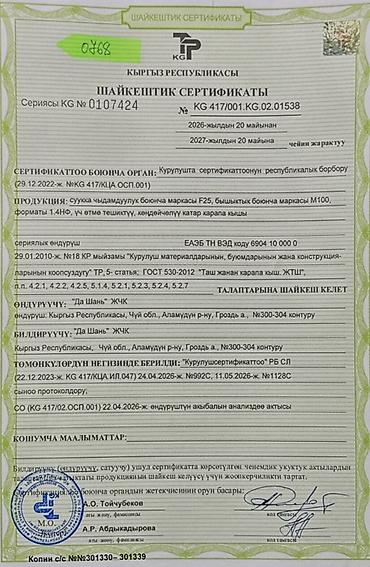 ШАЙКЕШТИК СЕРТИФИКАТЫ
0768
KG
КЫРГЫЗ РЕСПУБЛИКАСЫ
ШАЙКЕШТИК СЕРТИФИКАТЫ
Сериясы KG № 0107424
№ KG 417/001.KG.02.01538
2026-жылдын 20 майынан
2027-жылдын 20 майынан чейин жарактуу
СЕРТИФИКАТТОО БОЮНЧА ОРГАН: Курулушта сертификаттоонун республикалык борбору
(29.12.2022-ж. №KG 417/КЦА.ОСП.001)
ПРОДУКЦИЯ: суукка чыдамдуулук боюнча маркасы F25, бышыктык боюнча маркасы М100,
форматы 1.4НФ, үч өтмө тешиктүү, көңдөйчөлүү катар карапа кышы
сериялык өндүрүш ЕАЭБ ТН ВЭД коду 6904 10 000 0
29.01.2010-ж. №18 КР мыйзамы "Курулуш материалдарынын, буюмдарынын жана конструкция-
ларынын коопсуздугу" ТР, 5- статья; ГОСТ 530-2012 "Таш жанан карапа кыш. ЖТШ",
п.п. 4.2.1, 4.2.2, 4.2.5, 5.1.4, 5.2.1, 5.2.3, 5.2.4, 5.2.7 ТАЛАПТАРЫНА ШАЙКЕШ КЕЛЕТ
ӨНДҮРҮҮЧҮ: "Да Шань" ЖЧК
өндүрүш: Кыргыз Республикасы, Чүй обл., Аламүдүн р-ну, Гроздь а., №300-304 контуру
БИЛДИРҮҮЧҮ: "Да Шань" ЖЧК
Кыргыз Республикасы, Чүй обл., Аламүдүн р-ну, Гроздь а., №300-304 контуру
ТӨМӨНКҮЛӨРДҮН НЕГИЗИНДЕ БЕРИЛДИ: "Курулушсертификаттоо" РБ СЛ
(22.12.2023-ж. KG 417/КЦА.ИЛ.047) 24.04.2026-ж. №992С, 11.05.2026-ж. №1128С
сыноо протоколдору,
СО (KG 417/02.ОСП.001) 22.04.2026-ж. өндүрүштүн акыбалын анализдөө актысы
КОШУМЧА МААЛЫМАТТАР:
Билдирүүчү (өндүрүүчү, сатуучу) ушул сертификатта көрсөтүлгөн ченемдик укуктук актылардын
талаптарына продукциянын шайкеш келүүсү үчүн жоопкерчиликти тартат.
Сертификациялоо боюнча органдын жетекчисинин орун басары:
А.О. Тойчубеков
аты жөнү, фамилиясы
кол тамгасы
М.О.
А.Р. Абдыкадырова
аты жөнү, фамилиясы
кол тамгасы
Копии с/с №№301330– 301339